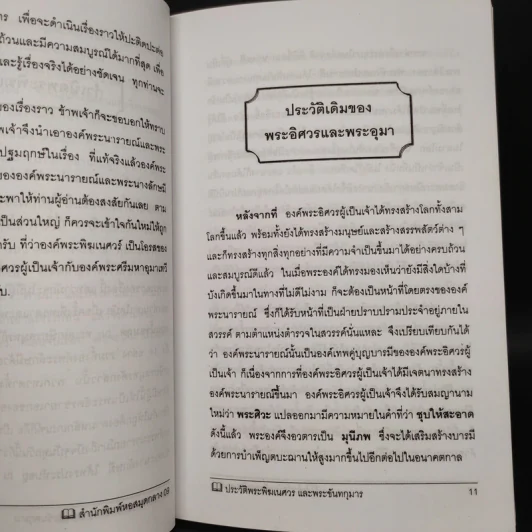 าร เพื่อจะดำเนินเรื่องราวให้ปะติดปะต่อ
ถ้วนและมีความสมบูรณ์ได้มากที่สุด เพื่อ
และรู้เรื่องจริงได้อย่างชัดเจน ทุกท่านจะ
ของเรื่องราว ข้าพเจ้าก็จะขอบอกให้ทราบ
พเจ้าจึงนำเอาองค์พระนารายณ์และพระ
ปฐมฤกษ์ในเรื่อง ที่แท้จริงแล้วองค์พระ
ขององค์พระนารายณ์และพระนางลักษมี
ะพาให้ท่านผู้อ่านต้องสงสัยกันเลย ตาม
เป็นส่วนใหญ่ ก็ควรจะเข้าใจกันใหม่ให้ถูก
ครับ ที่ว่าองค์พระพิฆเนศวร์ เป็นโอรสของ
ศวรผู้เป็นเจ้ากับองค์พระศรีมหาอุมาเทวี
บ.
สำนักพิมพ์หอสมุดกลาง 09
ประวัติเดิมของ
พระอิศวรและพระอุมา
หลังจากที่ องค์พระอิศวรผู้เป็นเจ้าได้ทรงสร้างโลกทั้งสาม
โลกขึ้นแล้ว พร้อมทั้งยังได้ทรงสร้างมนุษย์และสร้างสรรพสัตว์ต่าง ๆ
และก็ทรงสร้างทุกสิ่งทุกอย่างที่มีความจำเป็นขึ้นมาได้อย่างครบถ้วน
และสมบูรณ์ดีแล้ว ในเมื่อพระองค์ได้ทรงมองเห็นว่ายังมีสิ่งใดบ้างที่
บังเกิดขึ้นมาในทางที่ไม่ดีไม่งาม ก็จะต้องเป็นหน้าที่โดยตรงขององค์
พระนารายณ์ ซึ่งก็ได้รับหน้าที่เป็นฝ่ายปราบปรามประจำอยู่ภายใน
สวรรค์ ตามตำแหน่งตำรวจในสวรรค์นั่นแหละ จึงเปรียบเทียบกันได้
ว่า องค์พระนารายณ์นั้นเป็นองค์เทพคู่บุญบารมีขององค์พระอิศวรผู้
เป็นเจ้า ก็เนื่องจากการที่องค์พระอิศวรผู้เป็นเจ้าได้มีเจตนาทรงสร้าง
องค์พระนารายณ์ขึ้นมา องค์พระอิศวรผู้เป็นเจ้าจึงได้รับสมญานาม
ใหม่ว่า พระศิวะ แปลออกมามีความหมายในคำที่ว่า ชุบให้สะอาด
ดังนี้แล้ว พระองค์จึงอวตารเป็น มุนีภพ ซึ่งจะได้เสริมสร้างบารมี
ด้วยการบำเพ็ญตบะฌานให้สูงมากขึ้นไปอีกต่อไปในอนาคตกาล
ประวัติพระพิฆเนศวร และพระขันทกุมาร 11